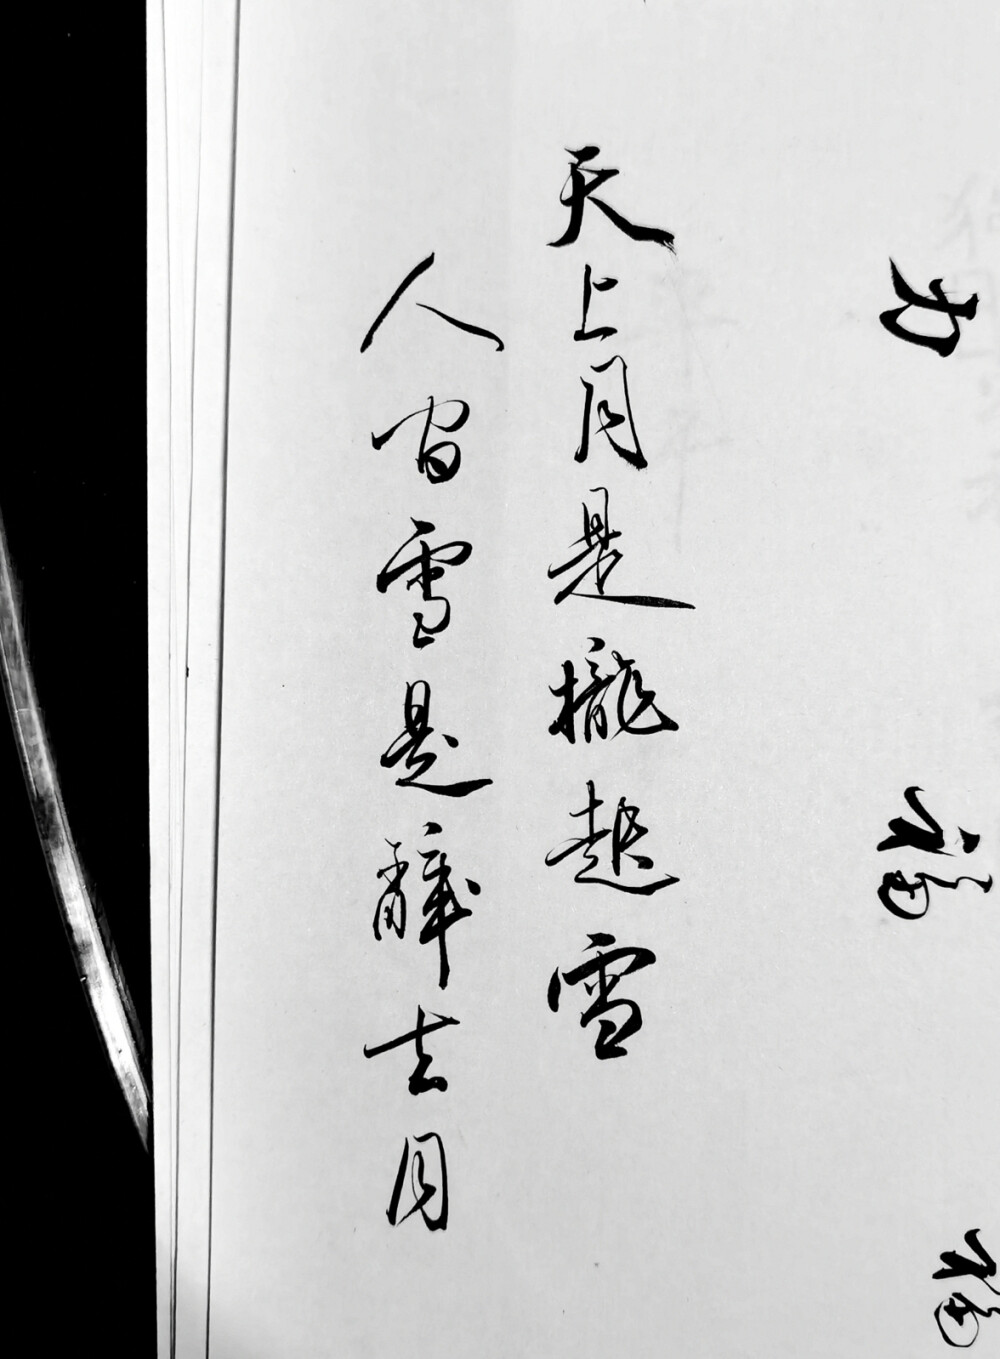 力
福
福
天上月是攏起雪
人间雪是辭去月